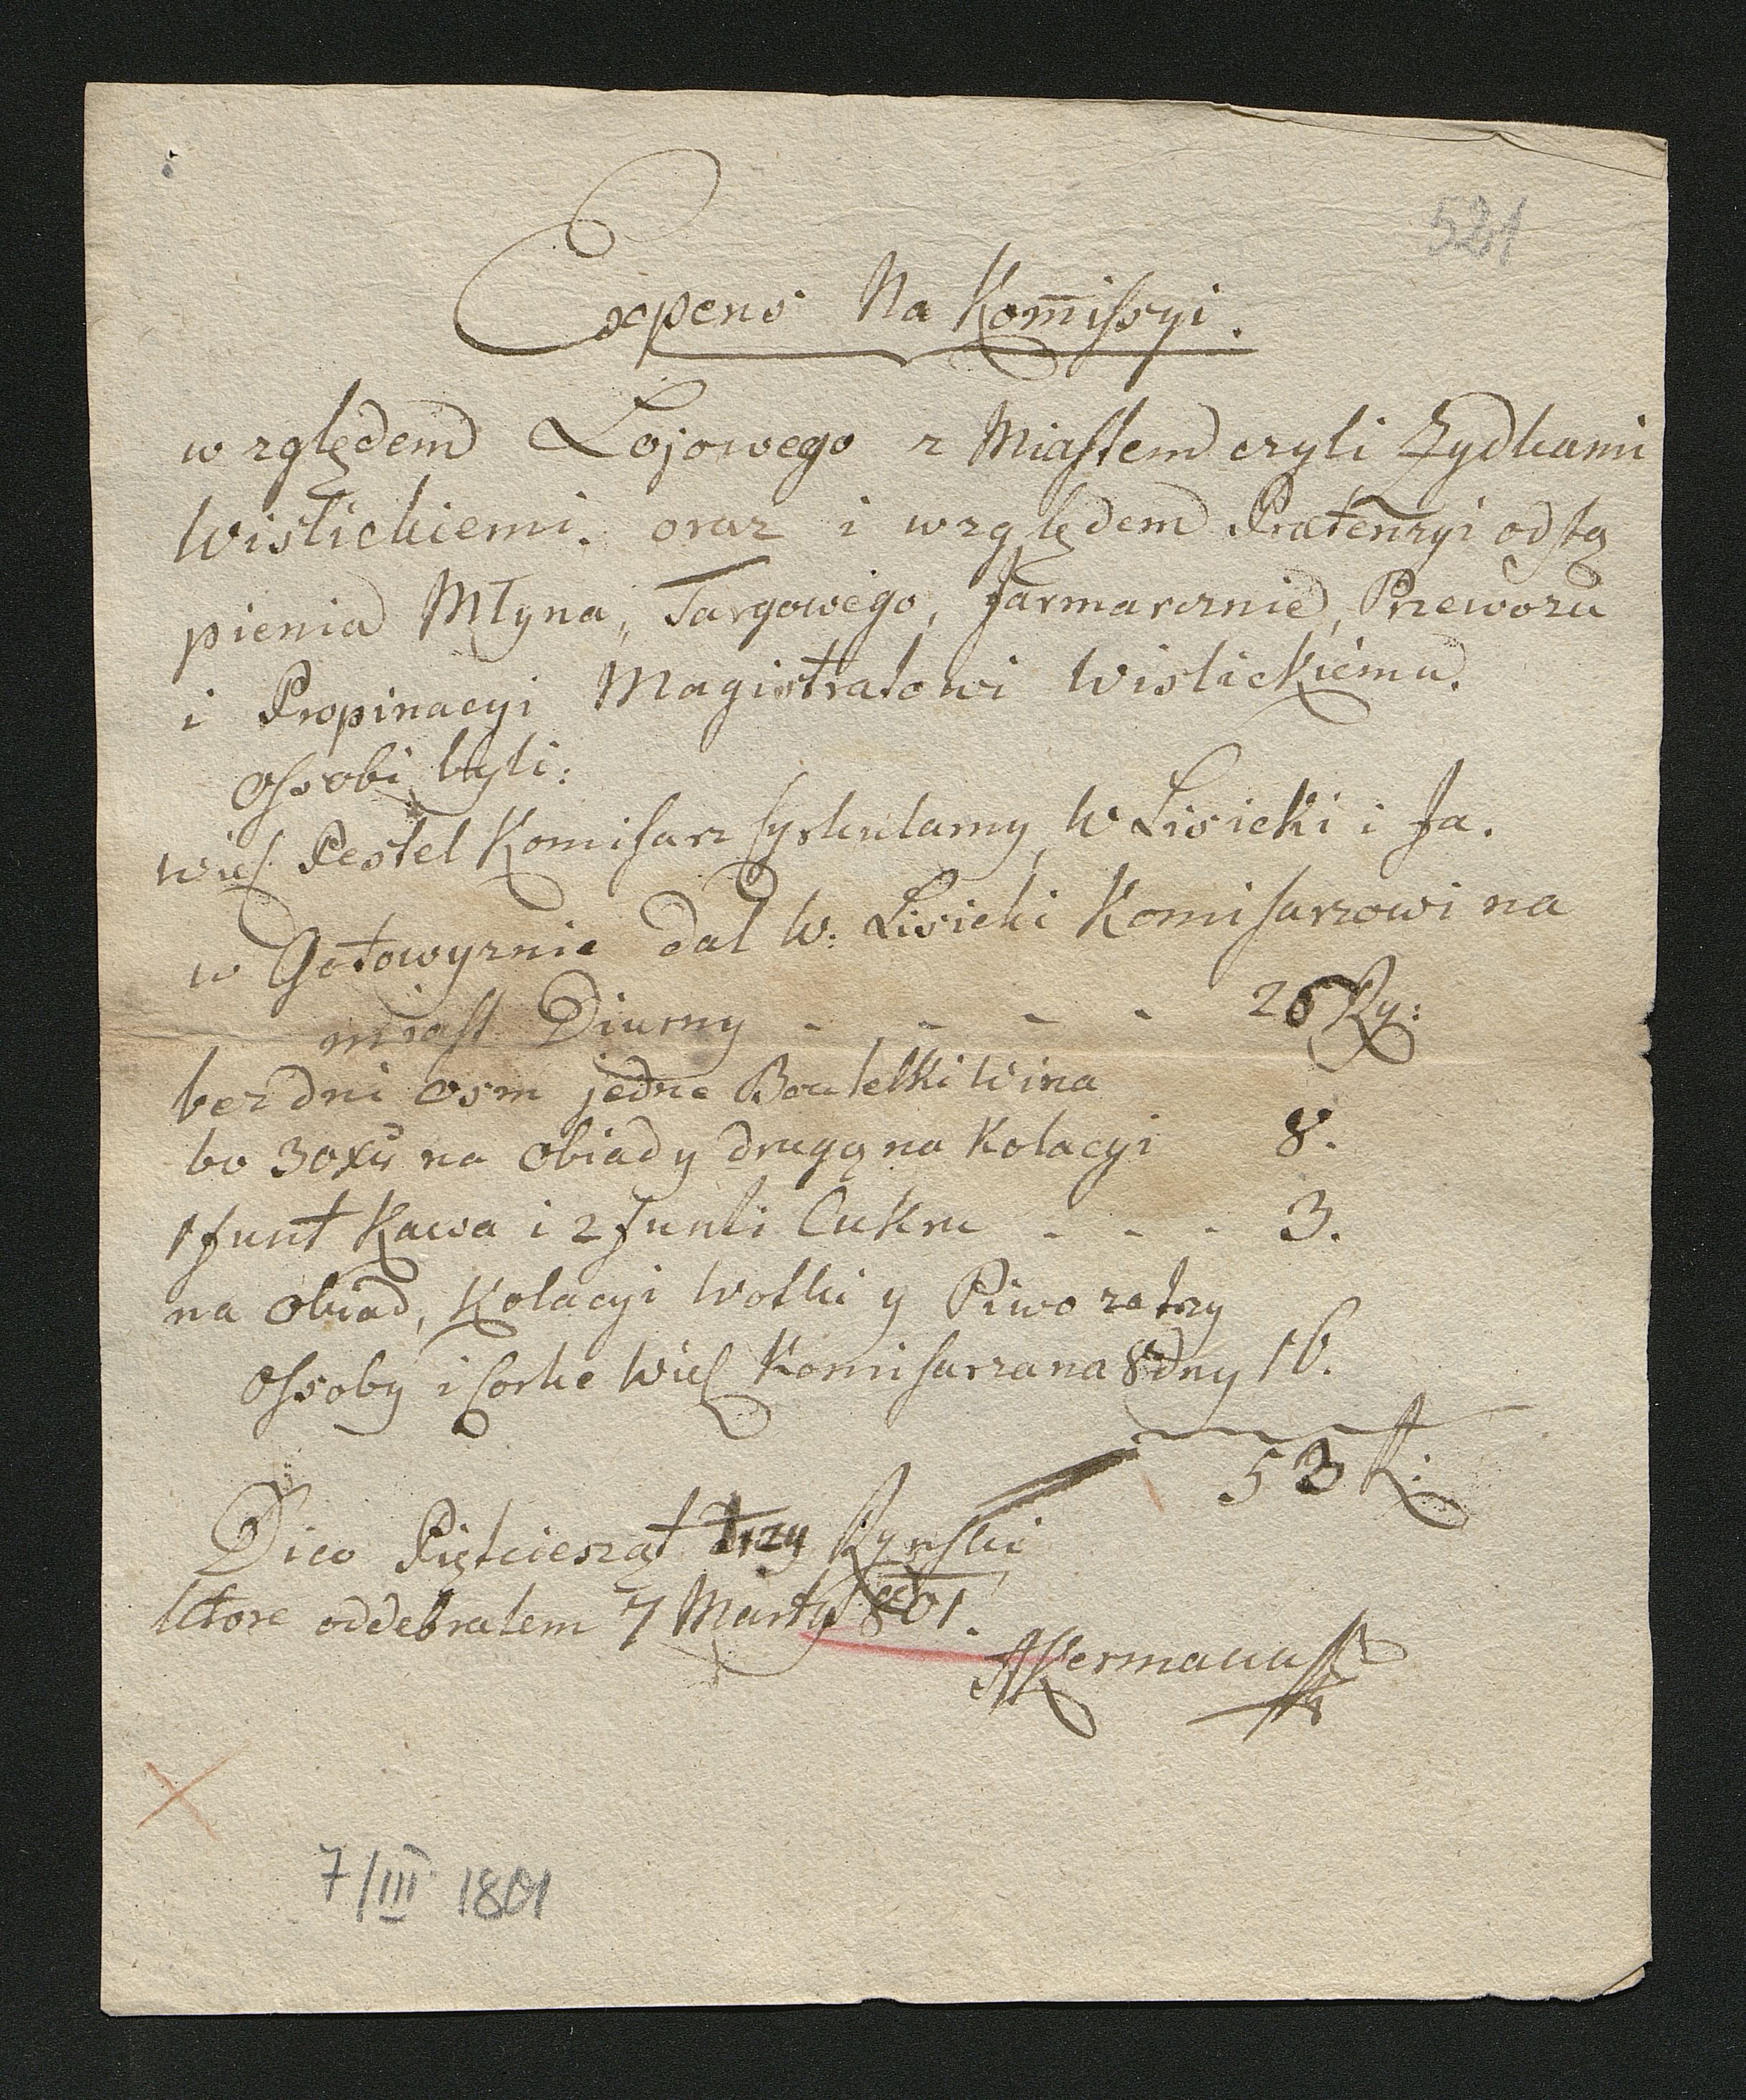 521
Expens Na Kom̅issyi.
względem Łojowego z Miastem czyli Zydkami
Wislickiemi. oraz i względem Prætenzyi odstą
pienia Młyna, Targowego, Jarmarcznie, Przewozu
i Propinacyi Magistratowi Wislickiemu.
Ossobi byli:
Wiel Pestel Komisarz Cyrkularny, W Lisicki i Ja.
w Gotowyznie dal W: Lisicki Komisarzowi na
miast Diurny - - - - 26 Ry:
bez dni osm jedne Boutelki Wina
bo 30 xů na Obiad y drugą na Kolacyi 8.
1 funt Kawa i 2 funti Cukru - - - 3.
na obiad, Kolacyi Wotki y Piwo za trzy
Ossoby i Corke Wiel Komisarza na 8 dny 16.
53 R:
Dico Piętciesząt trzy Rynski
ktore oddebralem 7 Marty 801.
7/III 1801